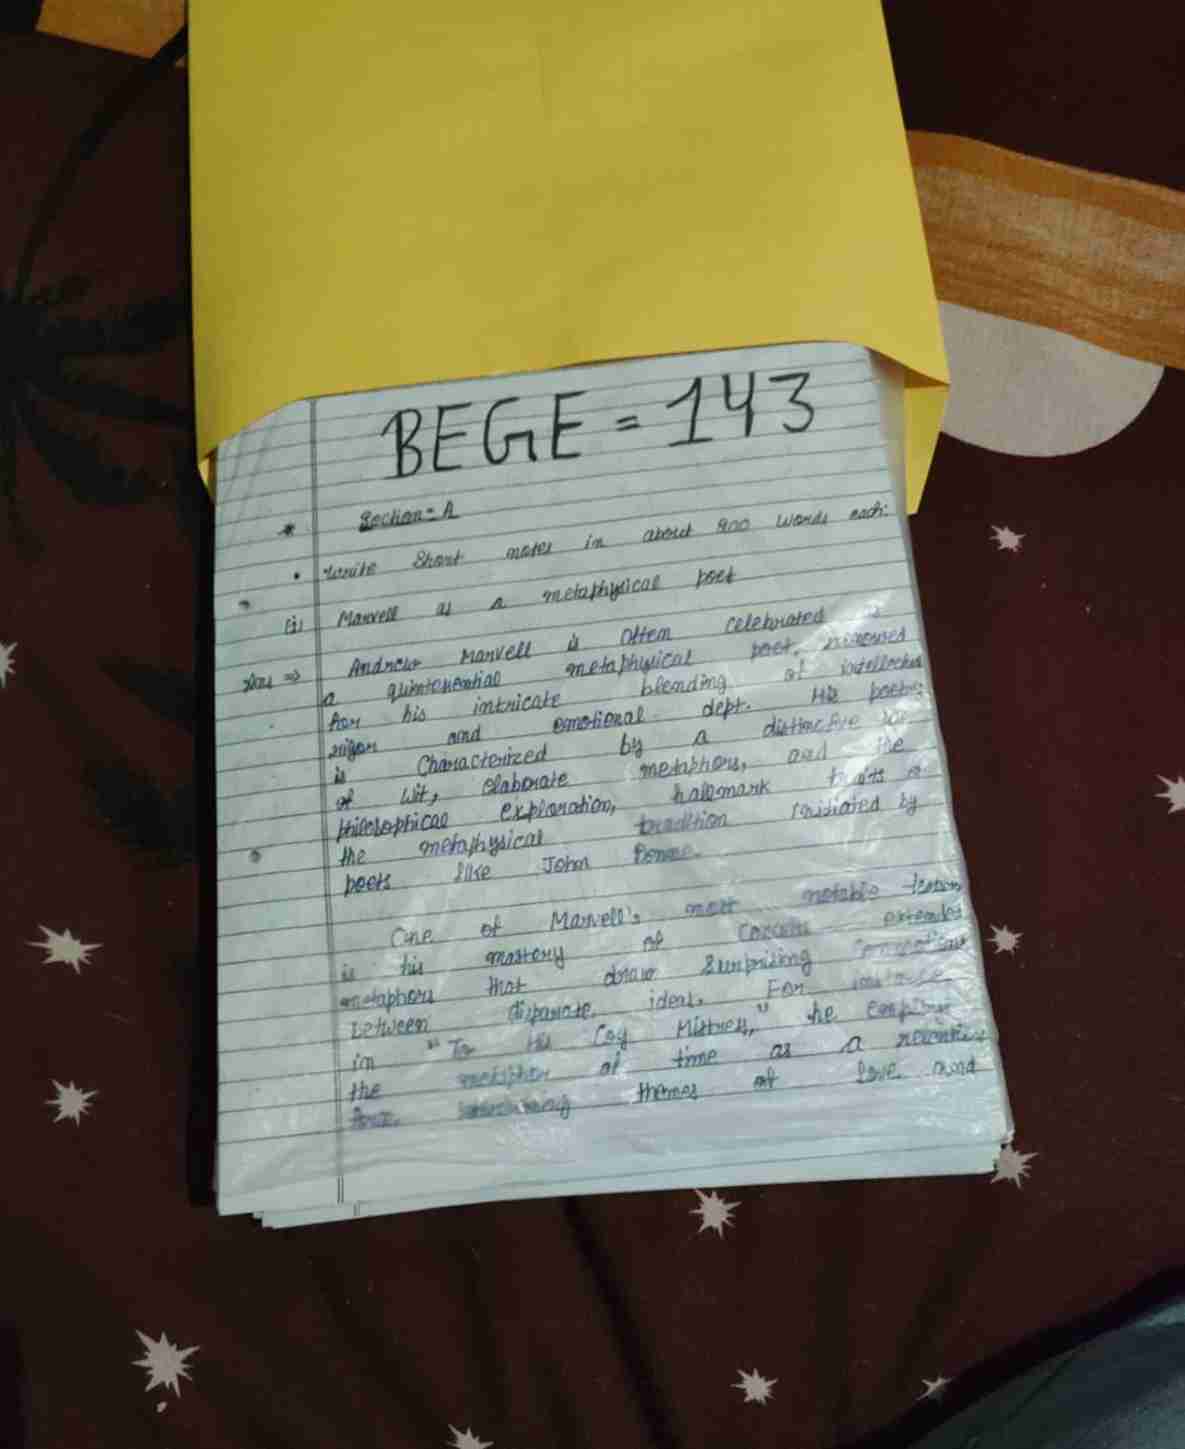 BEGE = 143
* Section = A
• Write Short notes in about 200 words each:
(i) Marvell as a metaphysical poet
Ans ⇒ Andrew Marvell is often celebrated as
a quintessential metaphysical poet, renowned
for his intricate blending of intellectual
rigor and emotional dept. His poetry
is Characterized by a distinctive use
of wit, elaborate metaphors, and the
philosophical exploration, hallmark traits of
the metaphysical tradition initiated by
poets like John Donne.
One of Marvell's most notable
is his mastery of Conceits extended
metaphors that draw Surprising
between disparate ideas. For instance
in "To His Coy Mistress," he employs
the metaphor of time as a
themes of love and